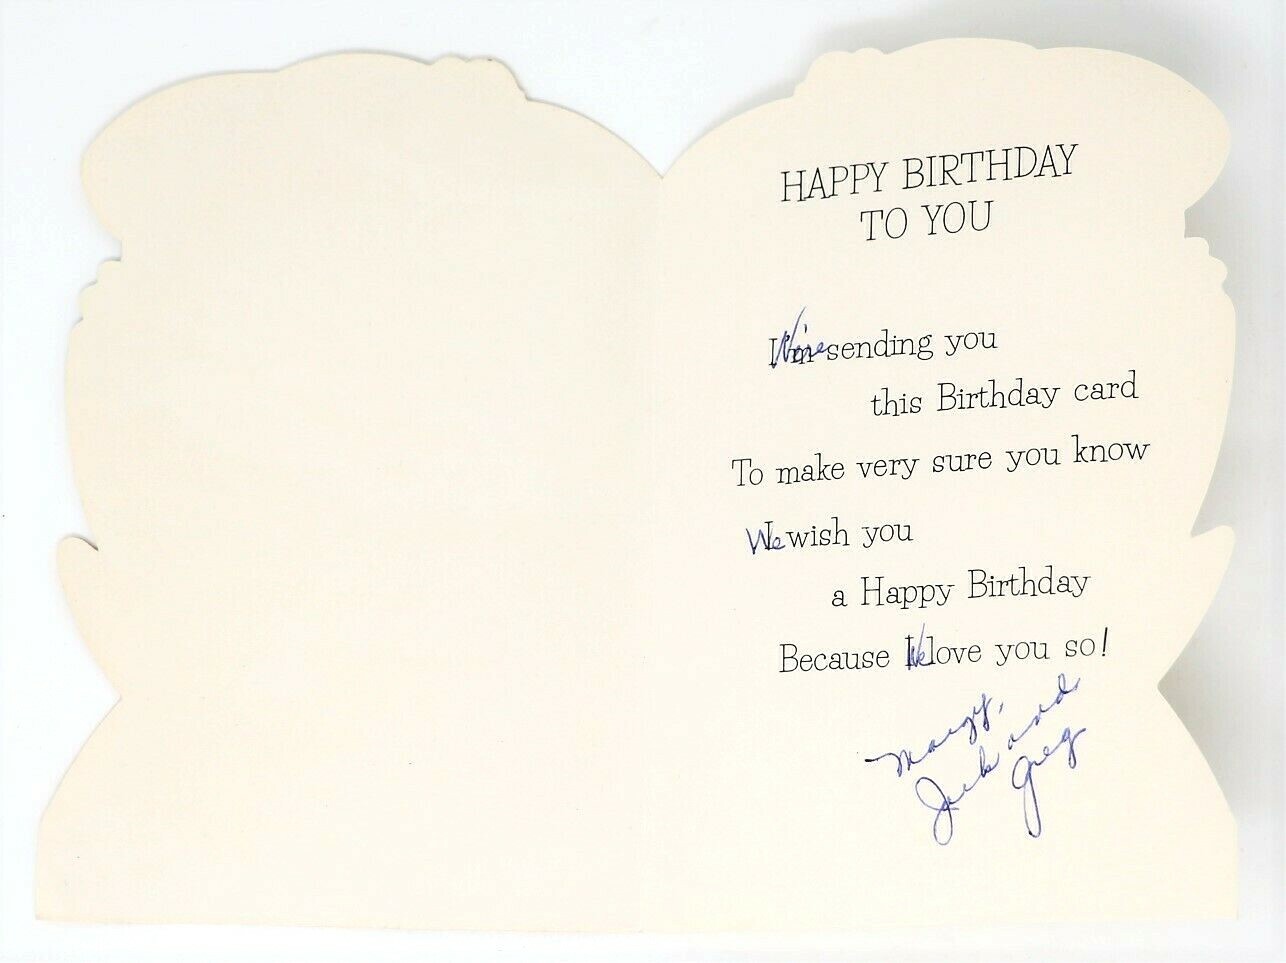 HAPPY BIRTHDAY
TO YOU
I'm We're sending you
this Birthday card
To make very sure you know
I We wish you
a Happy Birthday
Because I We love you so!
Margy,
Jack and
Greg